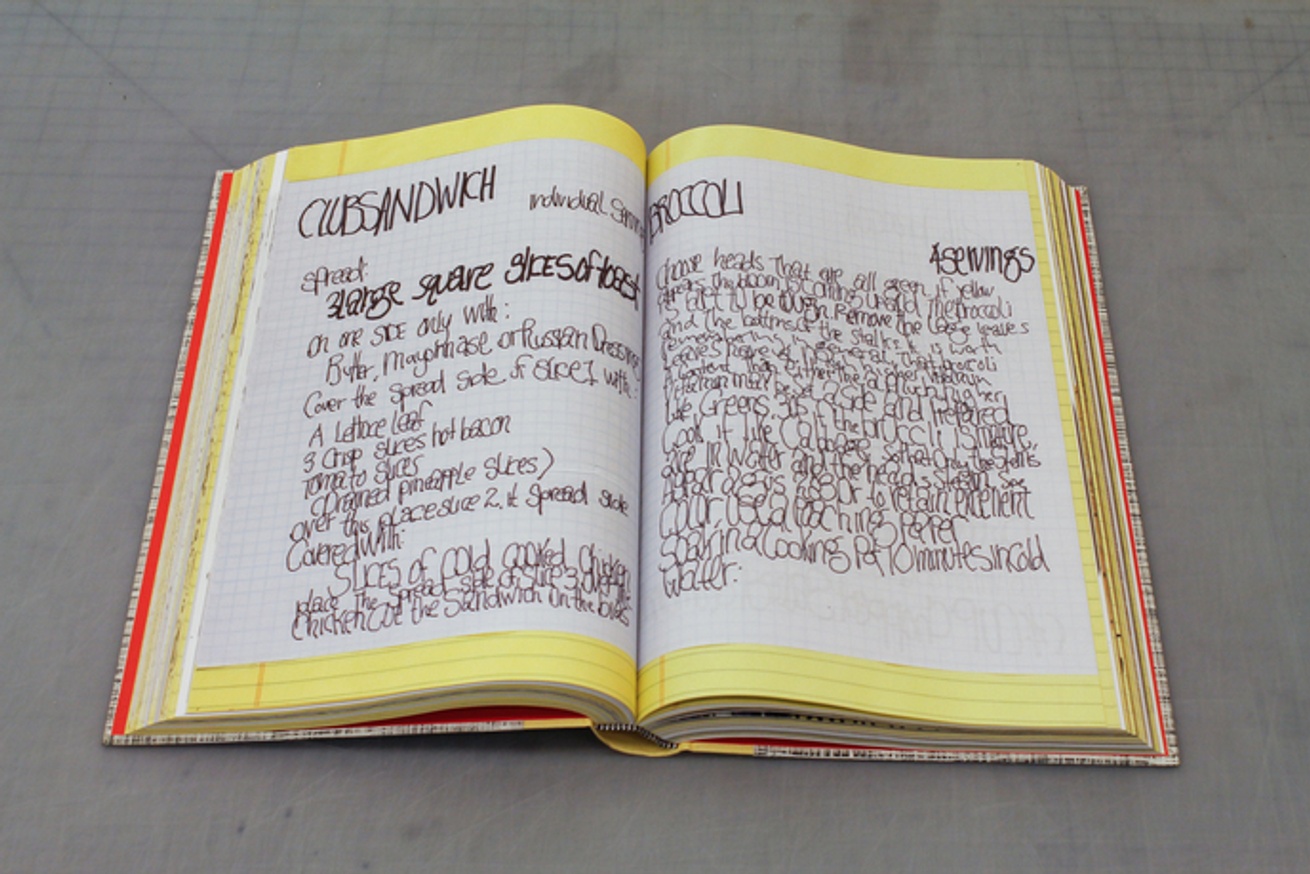 CLUBSANDWICH
individual
spread:
3 large square slices of toast
on one side only with:
Butter, Mayonnaise or Russian Dressing
Cover the Spread side of Slice 1 with:
A Lettuce leaf
3 Crisp slices hot bacon
Tomato slices
(Drained pineapple slices)
over this place slice 2. it Spread side
Covered with:
SLICES of cold cooked chicken
place the spread side of slice 3 on the
chicken Cut the Sandwich on the bias
BROCCOLI
4 servings
Choose heads That are all green. if yellow
appears the bloom is coming and the broccoli
is apt to be tough. Remove the large leaves
and The bottoms of the stalks. it is worth
remembering in general That broccoli
leaves have
content Than either the
may be set aside and Prepared
like Greens. Cook if the broccoli is mature,
like Cabbage, so that only the stems
are in water and the heads steam.
to retain
Color, use a poaching Paper
Soaking & Cooking 1st 10 minutes in cold
Water: